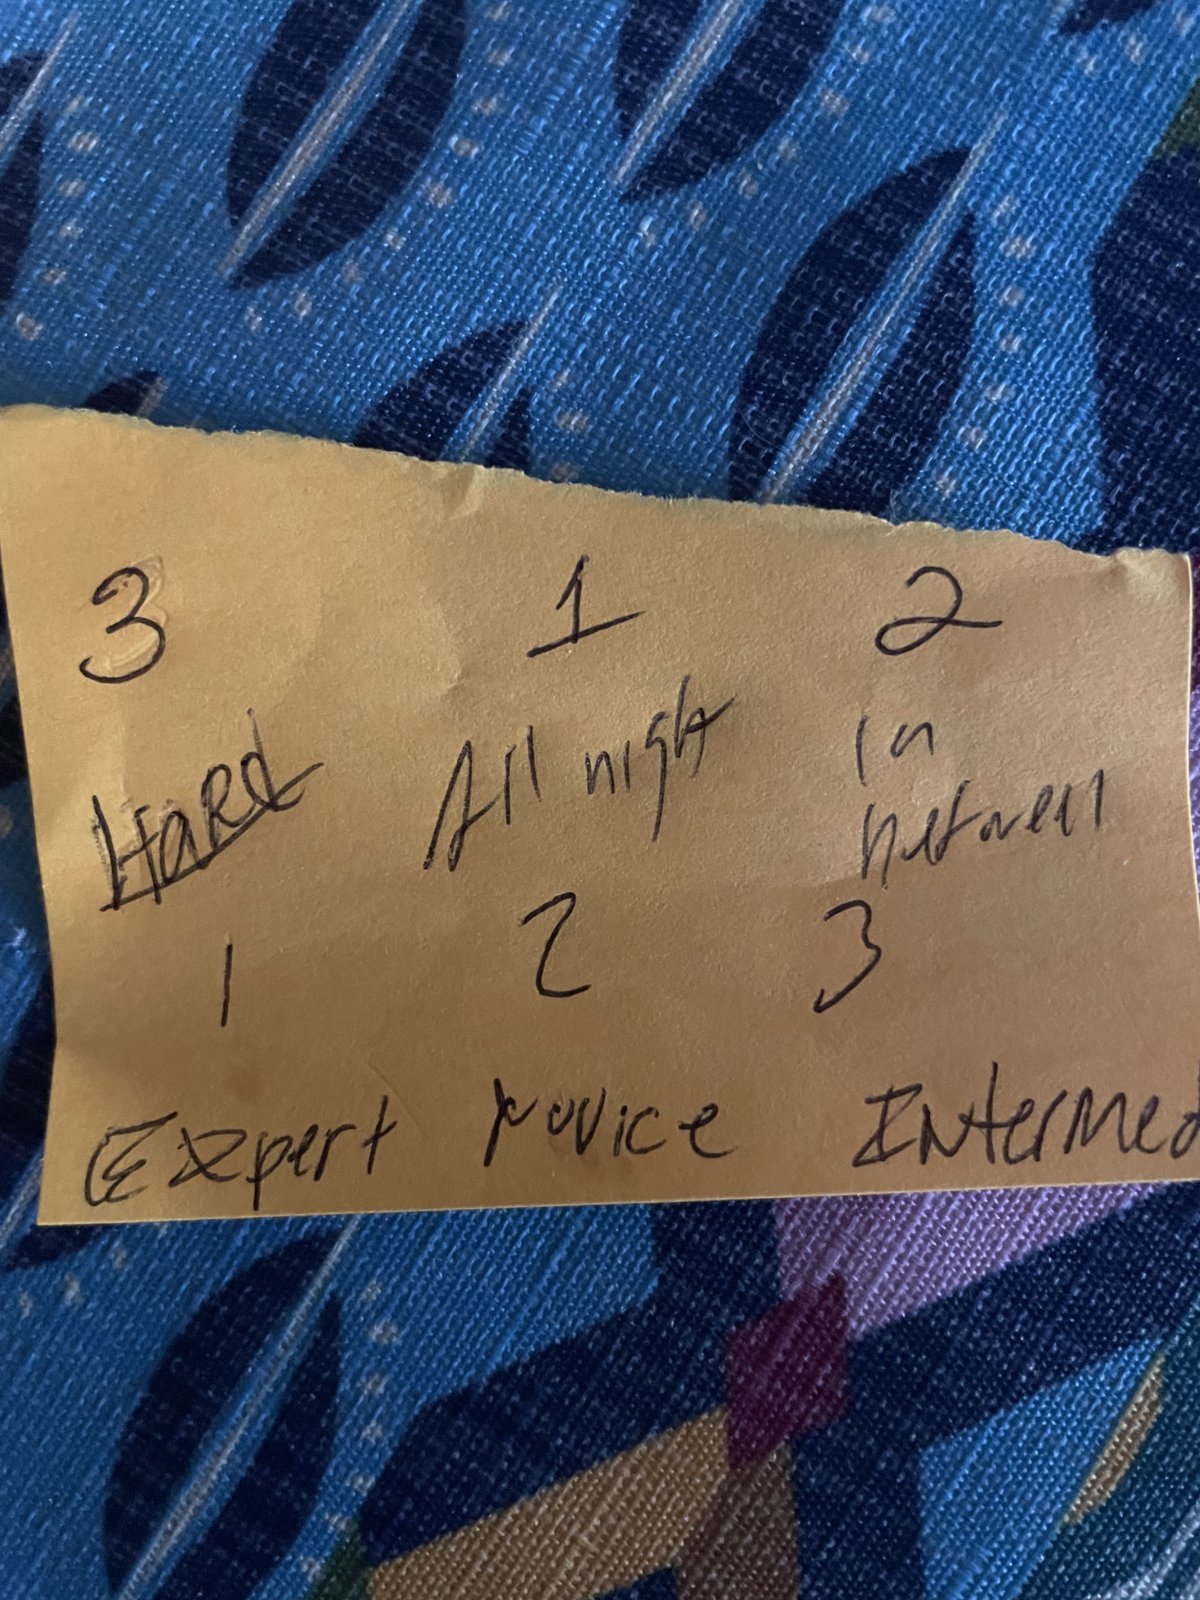 3 1 2
Hard All night In
between
1 2 3
Expert Novice Intermed